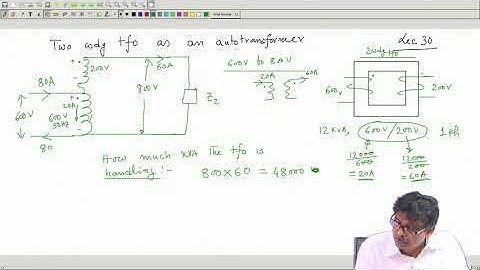 Two wdg tfo as an autotransformer
Lec 30
200V
60A
80A
600V
20A
600V
50Hz
80
800V
Z2
600V to 800V
20A
60A
2wdg tfo
600V
200V
12 KVA, 600V / 200V 1 ph
12000/600
= 20A
12000/200
= 60A
How much KVA the tfo is
handling :-
800 × 60 = 48000